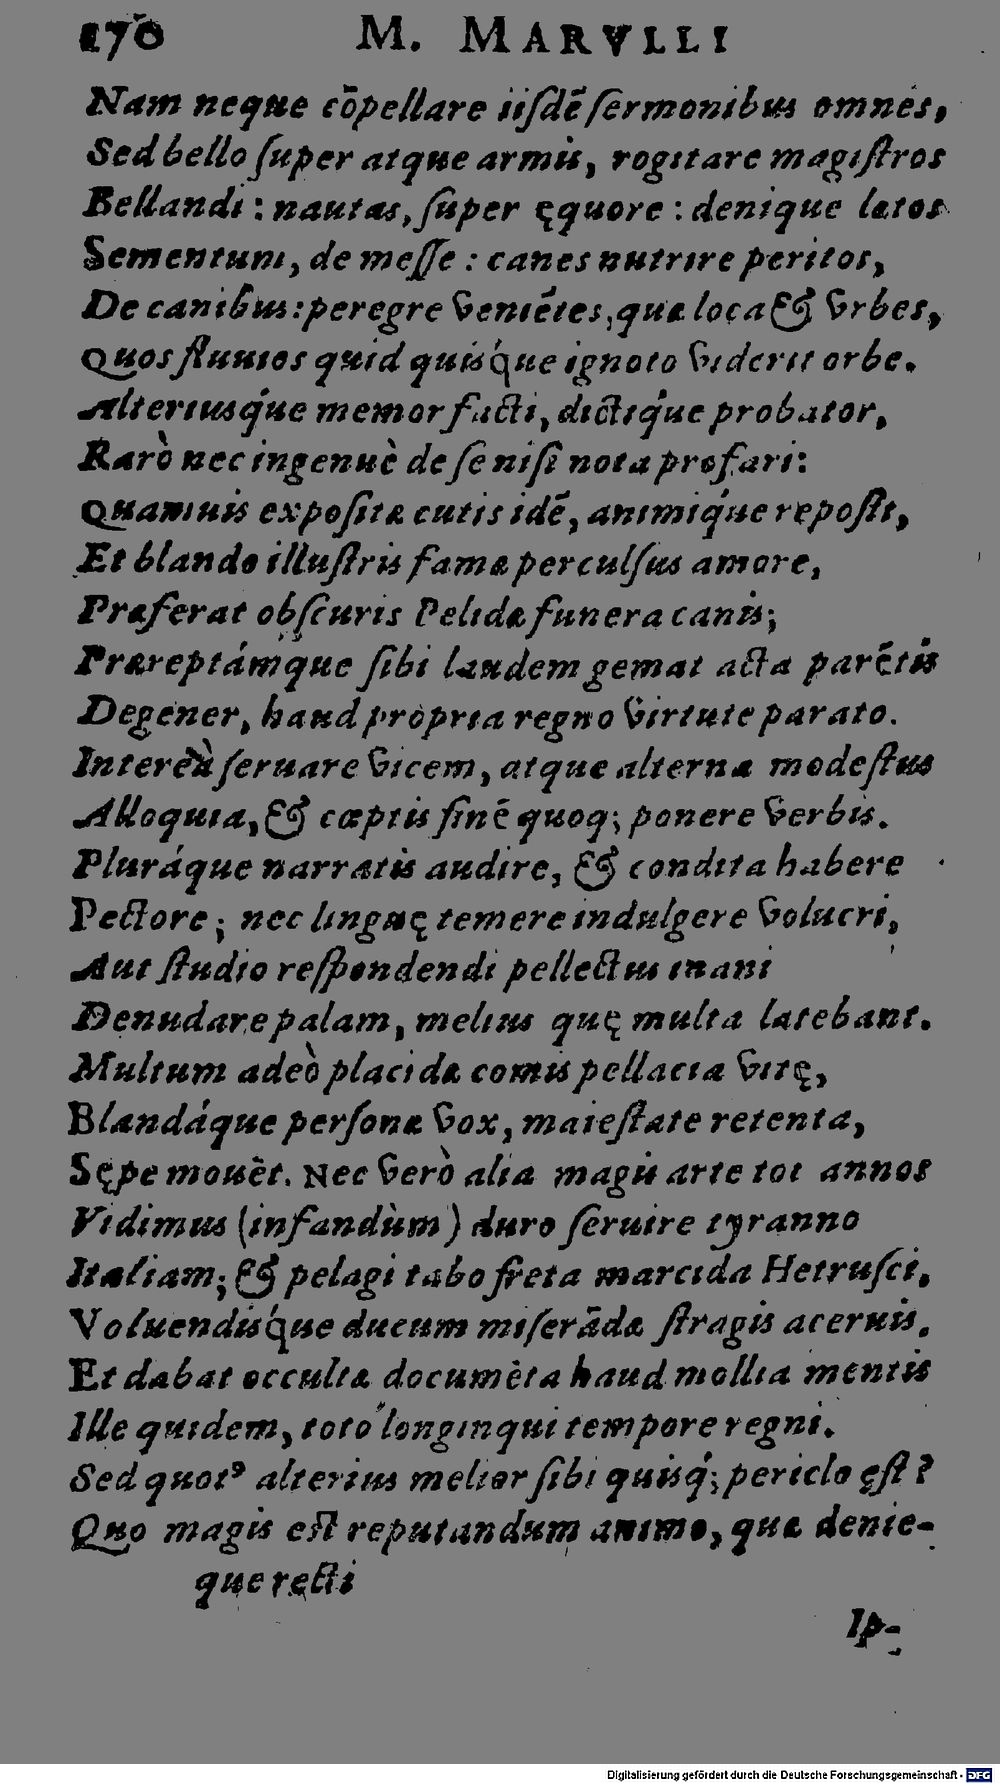 170 M. MARVLLI
Nam neque cōpellare iiſdē ſermonibus omnes,
Sed bello ſuper atque armis, rogitare magiſtros
Bellandi: nautas, ſuper ęquore: denique lætos
Sementum, de meſſe: canes nutrire peritos,
De canibus: peregre veniētes, quæ loca & vrbes,
Quos fluuios quid quisq́ue ignoto viderit orbe.
Alteriusq́ue memor facti, dictiq́ue probator,
Rarò nec ingenuè de ſe niſi nota profari:
Quamuis expoſitæ cutis idē, animiq́ue repoſti,
Et blando illuſtris famæ perculſus amore,
Præferat obſcuris Pelidæ funera canis;
Præreptámque ſibi laudem gemat acta parētis
Degener, haud propria regno virtute parato.
Intereà ſeruare vicem, atque alternæ modeſtus
Alloquia, & cœptis finē quoq; ponere verbis.
Pluráque narratis audire, & condita habere
Pectore; nec linguę temere indulgere volucri,
Aut ſtudio reſpondendi pellectus inani
Denudare palam, melius quę multa latebant.
Multum adeò placidæ comis pellacia vitę,
Blandáque perſonæ vox, maieſtate retenta,
Sępe mouēt. Nec verò alia magis arte tot annos
Vidimus (infandùm) duro ſeruire tyranno
Italiam; & pelagi tabo freta marcida Hetruſci,
Voluendisq́ue ducum miſerādæ ſtragis aceruis.
Et dabat occultæ documēta haud mollia mentis
Ille quidem, toto longinqui tempore regni.
Sed quotꝰ alterius melior ſibi quisq́; periclo ęſt?
Quo magis eſt reputandum animo, quæ denie-
que recti
Ip-
Digitalisierung gefördert durch die Deutsche Forschungsgemeinschaft - DFG